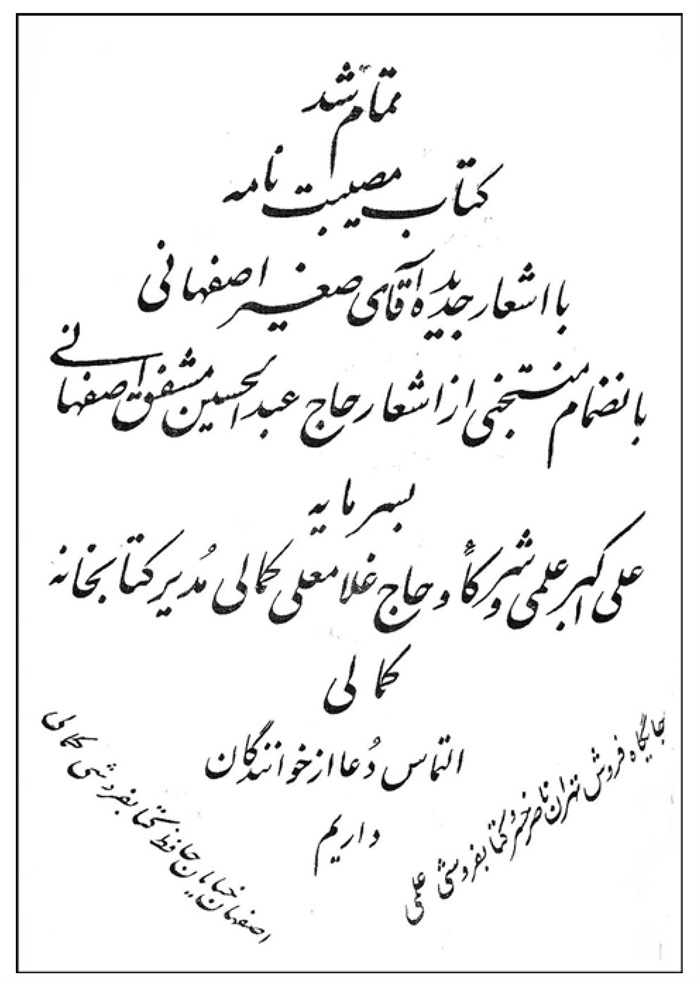 تمام شد
کتاب مصیبت نامه
با اشعار جدیده آقای صغیر اصفهانی
بانضمام منتخبی از اشعار حاج عبدالحسین مشفق اصفهانی
بسرمایه
علی اکبر علمی و شرکاء و حاج غلامعلی کمالی مدیر کتابخانه
کمالی
التماس دُعا از خوانندگان
داریم
جایگاه فروش تهران ناصر خسرو کتابفروشی علمی
اصفهان خیابان حافظ کتابفروشی کمالی